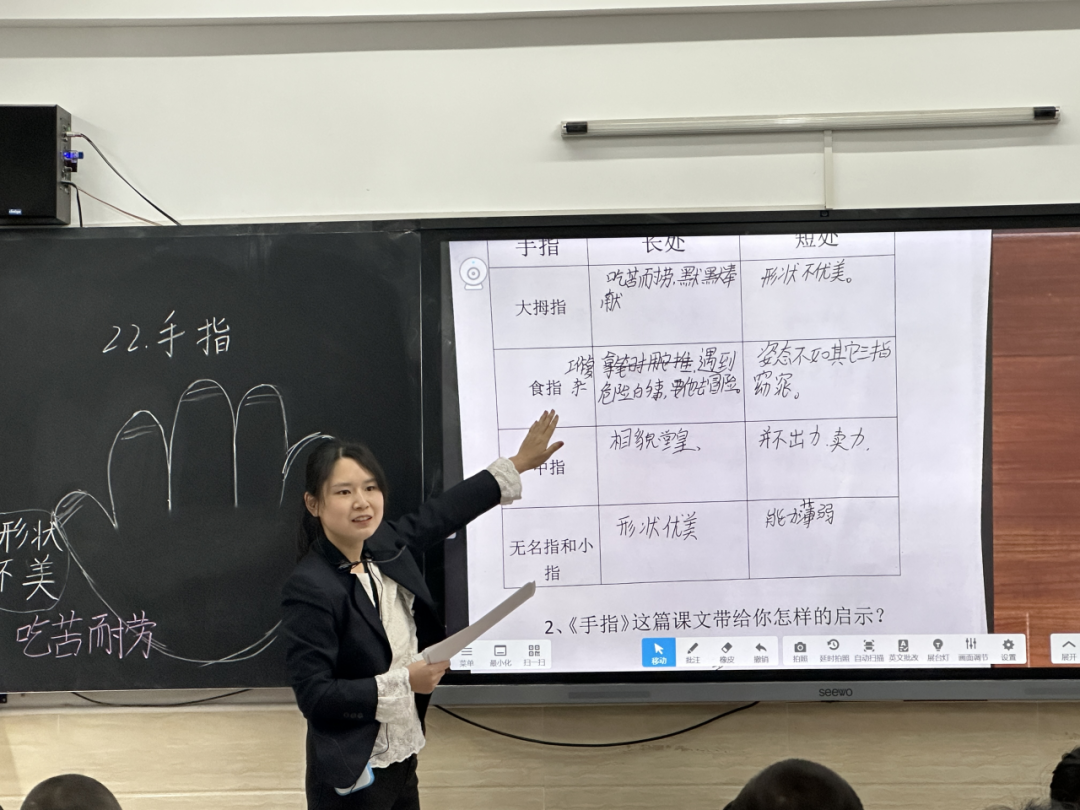 22.手指
形状
不美
吃苦而耐劳
手指
长处
短处
大拇指
吃苦而耐劳,默默奉
献
形状不优美。
食指
工作复
杂
拿笔时推,遇到
危险的事,要他去冒险。
姿态不如其它三指
窈窕。
中指
相貌堂皇、
并不出力.卖力.
无名指和小
指
形状优美
能力薄弱
2、《手指》这篇课文带给你怎样的启示?
菜单
最小化
扫一扫
移动
批注
橡皮
撤销
拍照
延时拍照
自动扫描
英文批改
展台灯
画面调节
设置
展开
seewo